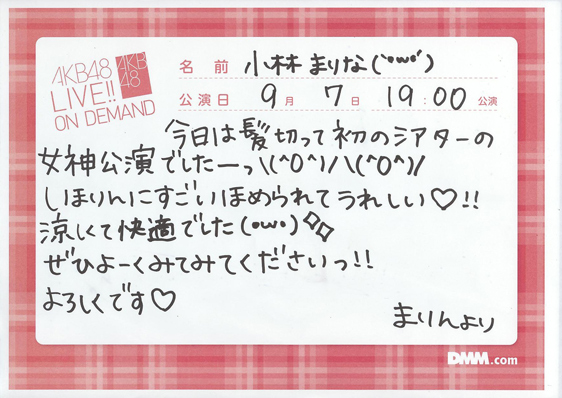 AKB48
LIVE!!
ON DEMAND
AKB
48
名前 小林まりな(`•ω•´)
公演日 9月 7日 19:00 公演
今日は髪切って初のシアターの
女神公演でしたーっ\(^O^)/\(^O^)/
しほりんにすごいほめられてうれしい♡!!
涼しくて快適でした(•ω•)
ぜひよーくみてみてくださいっ!!
よろしくです♡
まりんより
DMM.com